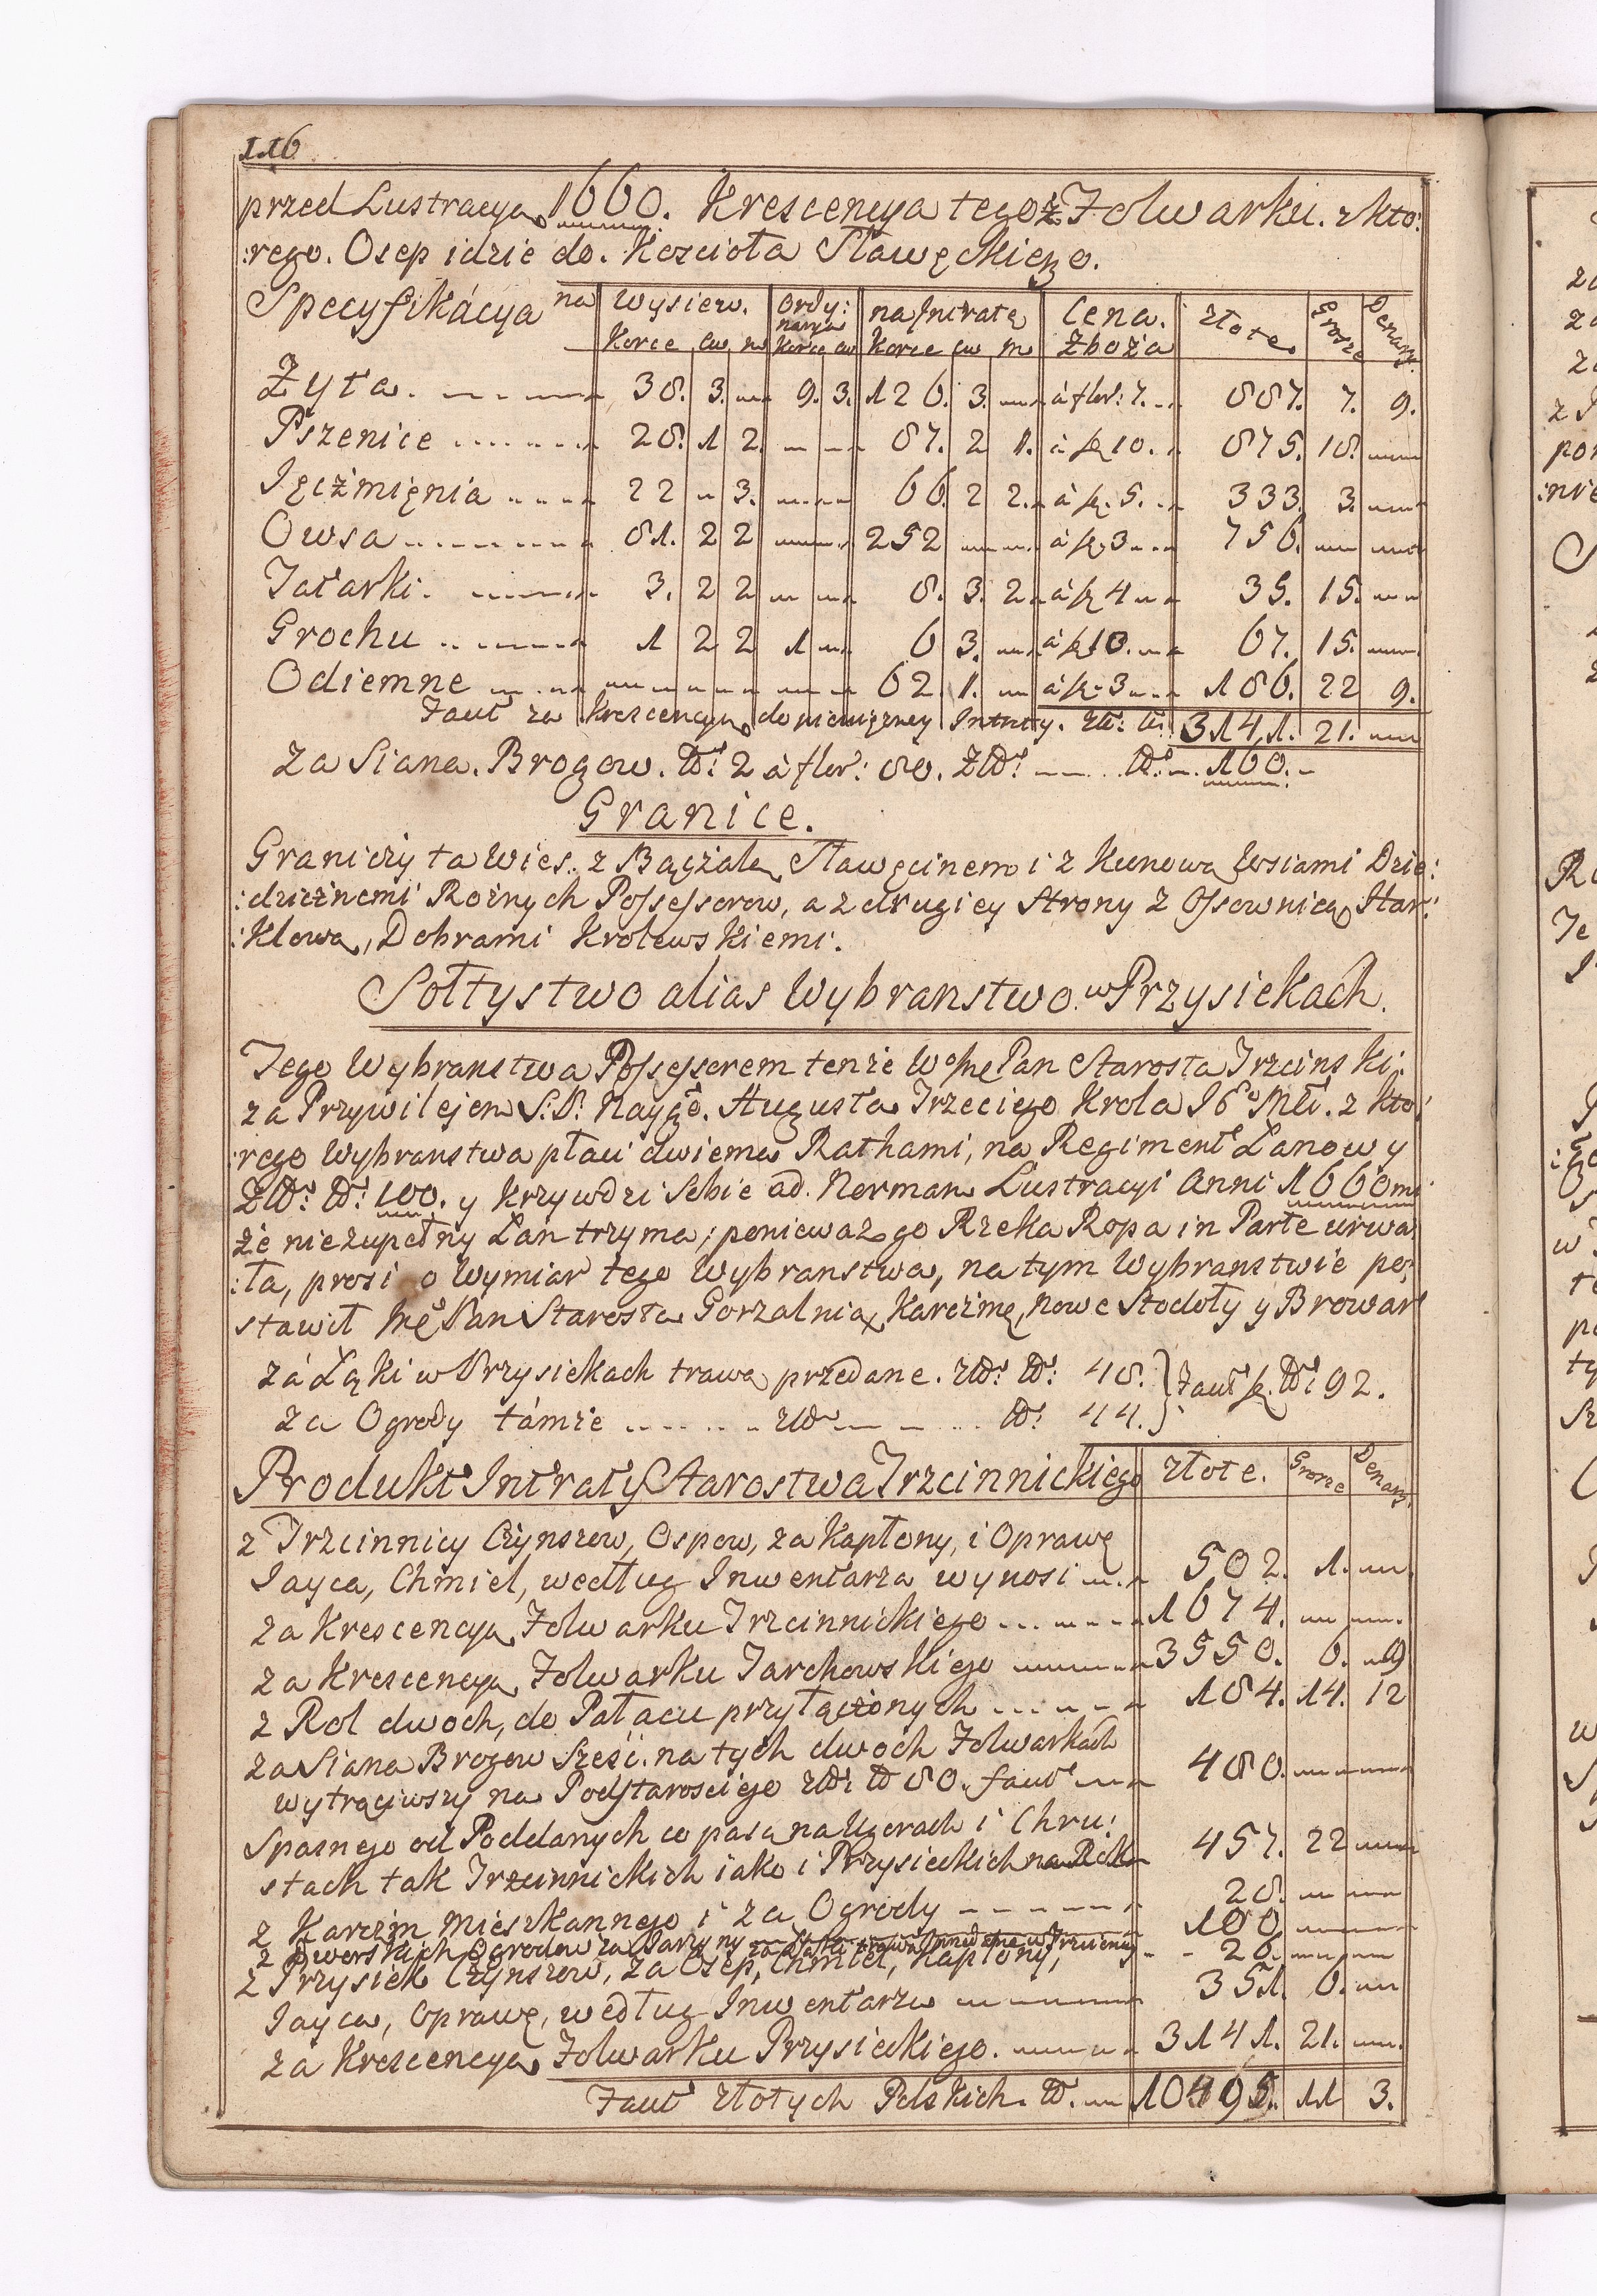 116
przed Lustracyą 1660. Krescencya tegoż Folwarku. z kto:
:rego. Osep idzie do. Koscioła Sławęckiego.
Specyfikácya na wysiew. ordy: narya na Jntratę Cena. złote. Grosze Denary.
Korce cw m Korce cw Korce cw m Zboża
Żyta. 38. 3. 9. 3. 126. 3. à flor: 7. 887. 7. 9.
Pszenice 28. 1 2. 87. 2 1. à fl 10. 875. 18.
Jęczmięnia 22 3. 66. 2 2. à fl. 5. 333. 3.
Owsa 81. 2 2 252 à fl. 3 756.
Tatarki. 3. 2 2 8. 3. 2. à fl 4 35. 15.
Grochu 1 2 2 1 6 3. à fl 10. 67. 15.
Odiemne 62. 1. à fl. 3 186. 22 9.
Facit za Krescencyą do pieniężney Intraty. zł: N: 3141. 21.
za Siana. Brogow. N: 2 à flor: 80. Złł: N: 160.
Granice.
Graniczy ta Wies. z Bączalą Sławęcinem i z Kunową Wsiami Dzie:
:dzicznemi Rożnych Possessorow, a z drugiey strony z Ossownicą Har:
:klową, Dobrami Krolewskiemi.
Sołtystwo alias Wybranstwo. w Przysiekach.
Tego Wybranstwa Possessorem tenże Pan Starosta Trzcinski.
za Przywilejem S: P: Nayge. Augusta Trzeciego Krola z kto:
:rego Wybranstwa płaci dwiema Rathami, na Regiment Łanowy
Złł: N: 100. y krzywdzi Sebie ad. Normam Lustracyi Anni 1660mi
że niezupełny Łan trzyma, ponieważ go Rzeka Ropa in Parte urwa:
:ła, prosi o Wymiar tego Wybranstwa, na tym Wybranstwie po:
stawił Pan Starosta Gorzalnią, Karczmę, nowe Stodoły y Browar
zá Łąki w Przysiekach trawą przedane. złł: N: 48. } Facit fl. N: 92.
za Ogrody támże złł N: 44.
Produkt Intraty Starostwa Trzcinnickiego złote. Grosze Denary.
z Trzcinnicy Czynszow, Ospow, za Kapłony, i Oprawę
Jayca, Chmiel, według Inwentarza wynosi 502. 1.
za Krescencyą Folwarku Trzcinnickiego 1674.
za Krescencyą Folwarku Jarchowskiego 3550. 6. 9
z Rol dwoch, do Pałacu przyłączonych 184. 14. 12
za Siana Brogow Sześć. na tych dwoch Folwarkach
wytrąciwszy na Podstarosciego złł: N 80. facit 480.
Spasnego od Poddanych co pasą na Ugorach i Chru:
stach tak Trzcinnickich iako i Przysieckich na Rok 457. 22
z Karczm Mieszkannego i za Ogrody 28.
z Dworskich Ogrodow za Jarzyny 100
z Przysiek Czynszow, za Osep, Chmiel, Kapłony, 26.
Jayca, Oprawę, według Inwentarza 351. 6.
za Krescencyą Folwarku Przysieckiego. 3141. 21.
Facit złotych Polskich. N. 10495. 11 3.